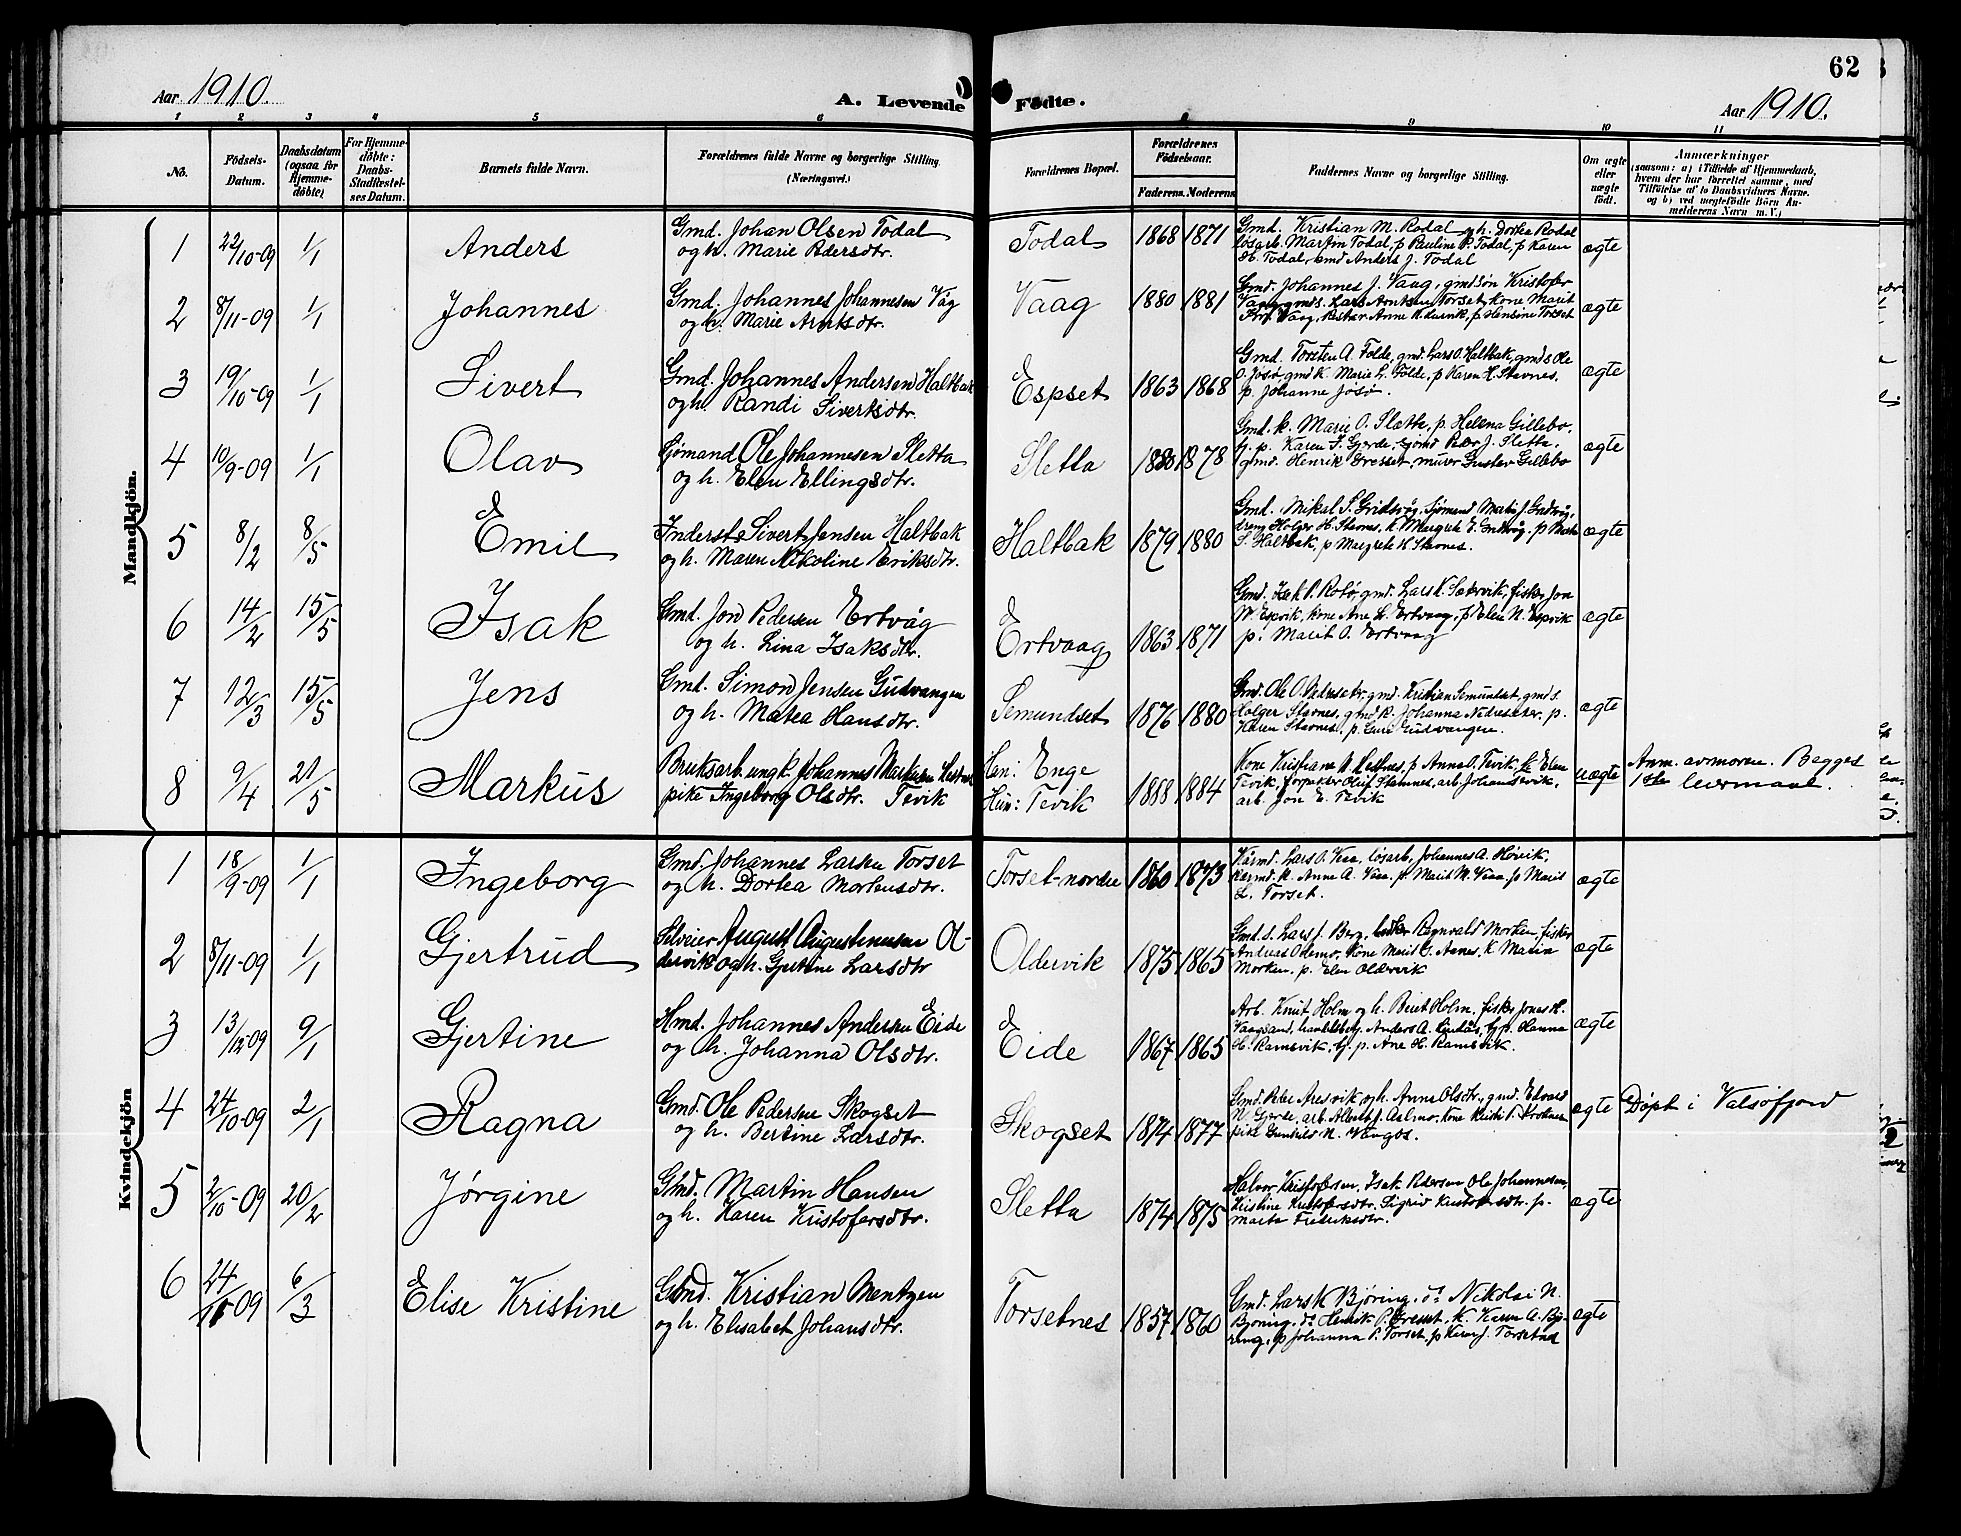 62
Aar 1910.
A. Levende Födte.
Aar 1910.
1 2 3 4 5 6 8 9 10 11
No.
Födsels-Datum.
Daabsdatum (ogsaa for Hjemme-döbte).
For Hjemme-döbte: Daabs-Stadfæstel-ses Datum.
Barnets fulde Navn.
Forældrenes fulde Navne og borgerlige Stilling. (Næringsvei.)
Forældrenes Bopæl.
Forældrenes Födselsaar.
Faderens. Moderens.
Faddernes Navne og borgerlige Stilling.
Om ægte eller uægte födt.
Anmærkninger
(saasom: a) i Tilfælde af Hjemmedaab, hvem der har forrettet samme, med Tilföielse af to Daabsvidners Navne. og b) ved uægtefödte Börn An-melderens Navn m. V.)
Mandkjön.
1 22/10-09 1/1 Anders
Gmd. Johan Olsen Todal
og h. Marie Pedersdtr.
Todal 1868 1871
Gmd. Kristian M. Rodal og h. Dortea Rodal
løsarb. Martin Todal, p Pauline P. Todal, p Karen
H. Todal, gmd Anders J. Todal
ægte
2 8/11-09 1/1 Johannes
Gmd. Johannes Johannesen Våg
og h. Marie Arntsdtr.
Vaag 1880 1881
Gmd. Johannes J. Vaag, gmd søn Kristofer
Vaag, gmd s. Lars Arntsen Torset, kone Marit
Vaag, Anne K. p Hansine Torset
ægte
3 19/10-09 1/1 Sivert
Gmd. Johannes Andersen Haltbak
og h. Randi Sivertsdtr.
Espset 1863 1868
Gmd. Torsten A. Folde, gmd. Lars O. Haltbak, gmd s Ole
O. Jøsø, gmd k. Marie L. Folde, p Karen H. Stavnes,
p. Johanne Jøsø.
ægte
4 10/9-09 1/1 Olav
Sjømand Ole Johannesen Sletta
og h. Elen Ellingsdtr.
Sletta 1880 1878
Gmd. k. Marie O. Slætta, p. Helena Gillebo,
tj. p. Karen I. Gjerde, sjømd Peder J. Sletta,
gmd. Henrik Dresset, murer Gustav Gillebo
ægte
5 8/2 8/5 Emil
Inderst Sivert Jensen Haltbak
og h. Maren Nikoline Eriksdtr.
Haltbak 1879 1880
Gmd. Mikal S. Sjømand
dreng Holger H. Stavnes, k. Margrete
S. Haltbak, p Margrete H. Stavnes.
ægte
6 14/2 15/5 Isak
Gmd. Jon Pedersen Ertvåg
og h. Lina Isaksdtr.
Ertvaag 1863 1871
Gmd. Isak P. gmd. Lars K. fisker Jon
Espvik, kone Ane L. Ertvaag, p Elen N. Espvik
p. Marit O. Ertvaag
ægte
7 12/3 15/5 Jens
Gmd. Simon Jensen Gudvangen
og h. Matea Hansdtr.
Semundset 1876 1880
Gmd. Ole O. gmd. Kristian Semundset, gmd s.
Holger Stavnes, gmd k. Johanna p.
Karen Stavnes, p. Gudvangen.
ægte
8 9/4 21/5 Markus
Bruksarb. ungk. Johannes Markusen
pike Ingeborg Olsdtr. Tevik
Han: Enge
Hun: Tevik
1888 1884
Kone Kristiane p Anna O. Tevik, Elen
Tevik, forpakter Oluf Stamnes, arb Johan Tevik,
arb. Jon E. Tevik
uægte
Anm. av moren. Begges
1ste leiermaal.
Kvindekjön
1 18/9-09 1/1 Ingeborg
Gmd. Johannes Larsen Torset
og h. Dortea Mortensdtr.
Torset-nordre 1860 1873
Kårmd. Lars O. Vaa, løsarb, Johannes A. Høvik,
kårmd. k. Anne A. Vaa, p. Marit M. Vaa, p Marit
L. Torset.
ægte
2 8/11-09 1/1 Gjertrud
Selveier August Augustinusen Ol-
dervik og h. Gjertine Larsdtr
Oldervik 1875 1865
Gmd. s. Lars J. Berg, Ragnvald Morken, fisker
Andreas kone Marit O. Aanes, k. Maria
Morken, p. Elen Oldervik
ægte
3 13/12-09 9/1 Gjertine
Hmd. Johannes Andersen Eide
og h. Johanna Olsdtr.
Eide 1867 1865
Arb. Knut Holm og h. Berit Holm, fisker Jonas H.
Vaagsand, handelsbtj. Anders A. tj. p. Hanna
H. Ramsvik, tj. p. Ane H. Ramsvik.
ægte
4 24/10-09 2/1 Ragna
Gmd. Ole Pedersen Skogset
og h. Bertine Larsdtr.
Skogset 1874 1877
Gmd. Peder Aresvik og h. Anne Olsdtr., gmd. Edvard
N. Gjerde, arb. Albert J. Aalmo, kone
pike Gunhild N. Vaagos.
ægte
Døpt i Valsøfjord
5 2/10-09 20/2 Jørgine
Gmd. Martin Hansen
og h. Karen Kristofersdtr.
Sletta 1874 1875
Halvor Kristofersen, Isak Pedersen Ole Johannesen,
Kristine Kristofersdtr. Sigrid Kristofersdtr. p.
Marta Fredriksdtr.
ægte
6 24/11-09 6/3 Elise Kristine
Gmd. Kristian Mentzen
og h. Elisabet Johansdtr.
Torsetnes 1857 1860
Gmd. Lars K Bjøring, do Nikolai N.
Bjøring, do Henrik P. Dresset, k. Karen A. Bjø-
ring, p Johanna P. Torset, p Karen J. Torsetnes
ægte